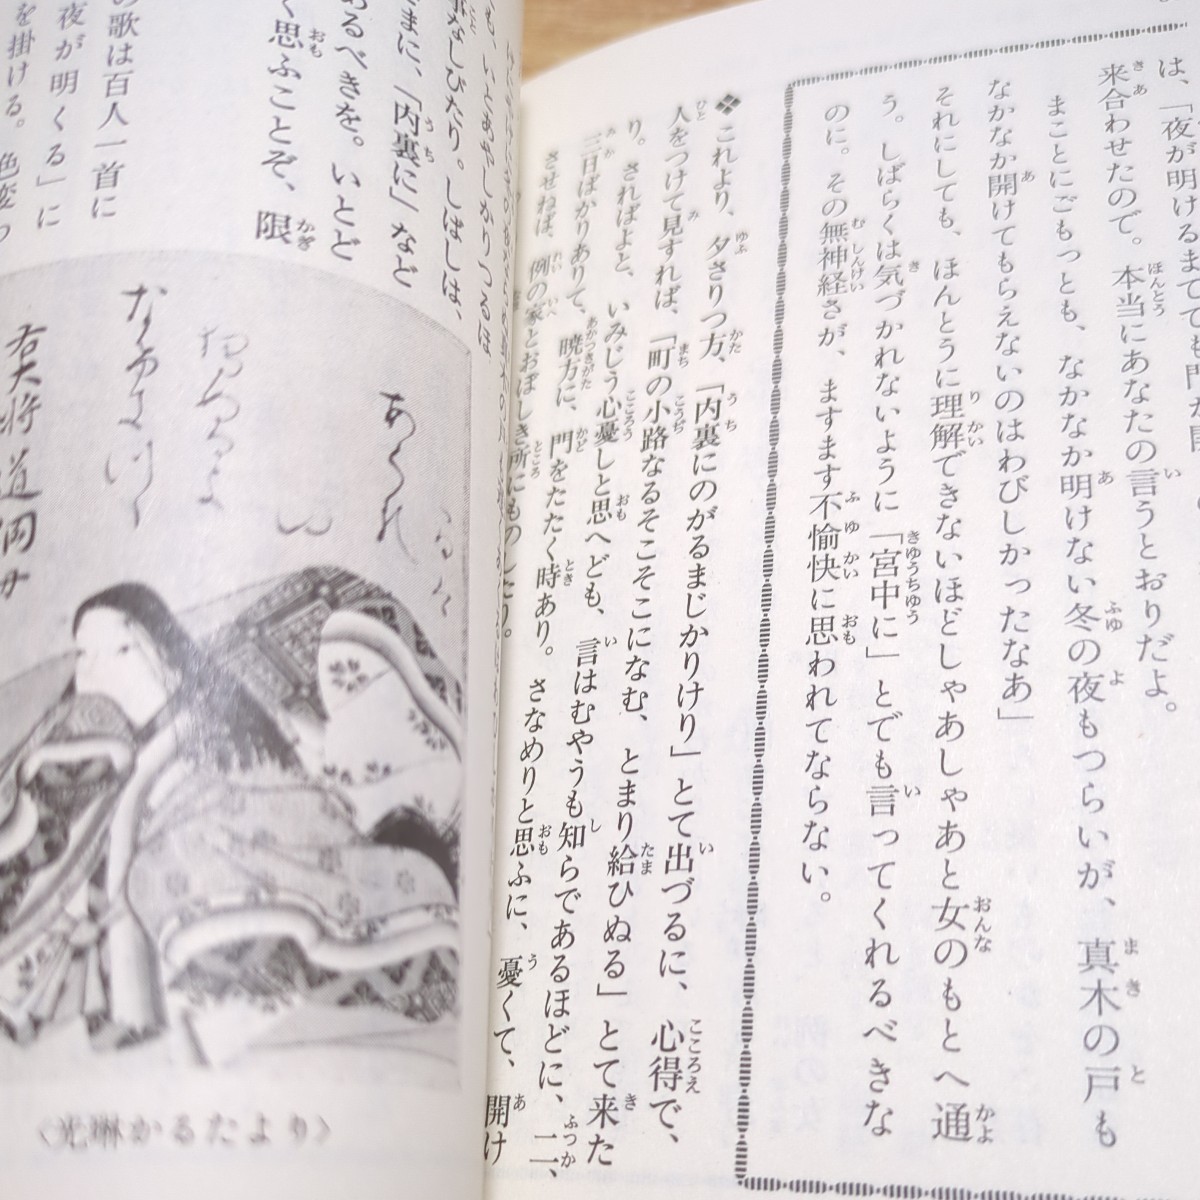 は、「夜が明けるまでも門が開
来合わせたので。本当にあなたの言うとおりだよ。
まことにごもっとも、なかなか明けない冬の夜もつらいが、真木の戸も
なかなか開けてもらえないのはわびしかったなあ」
それにしても、ほんとうに理解できないほどしゃあしゃあと女のもとへ通
う。しばらくは気づかれないように「宮中に」とでも言ってくれるべきな
のに。その無神経さが、ますます不愉快に思われてならない。
❖これより、夕さりつ方、「内裏にのがるまじかりけり」とて出づるに、心得で、
人をつけて見すれば、「町の小路なるそこそこになむ、とまり給ひぬる」とて来た
り。さればよと、いみじう心憂しと思へども、言はむやうも知らであるほどに、二、
三日ばかりありて、暁方に、門をたたく時あり。さなめりと思ふに、憂くて、開け
させねば、例の家とおぼしき所にものしたり。
も、いとあやしかりつるほ
なしびたり。しばしは、
まに、「内裏に」など
あるべきを。いとど
く思ふことぞ、限
の歌は百人一首に
夜が明くる」に
を掛ける。色変っ
右大将道綱母
〈光琳かるたより〉